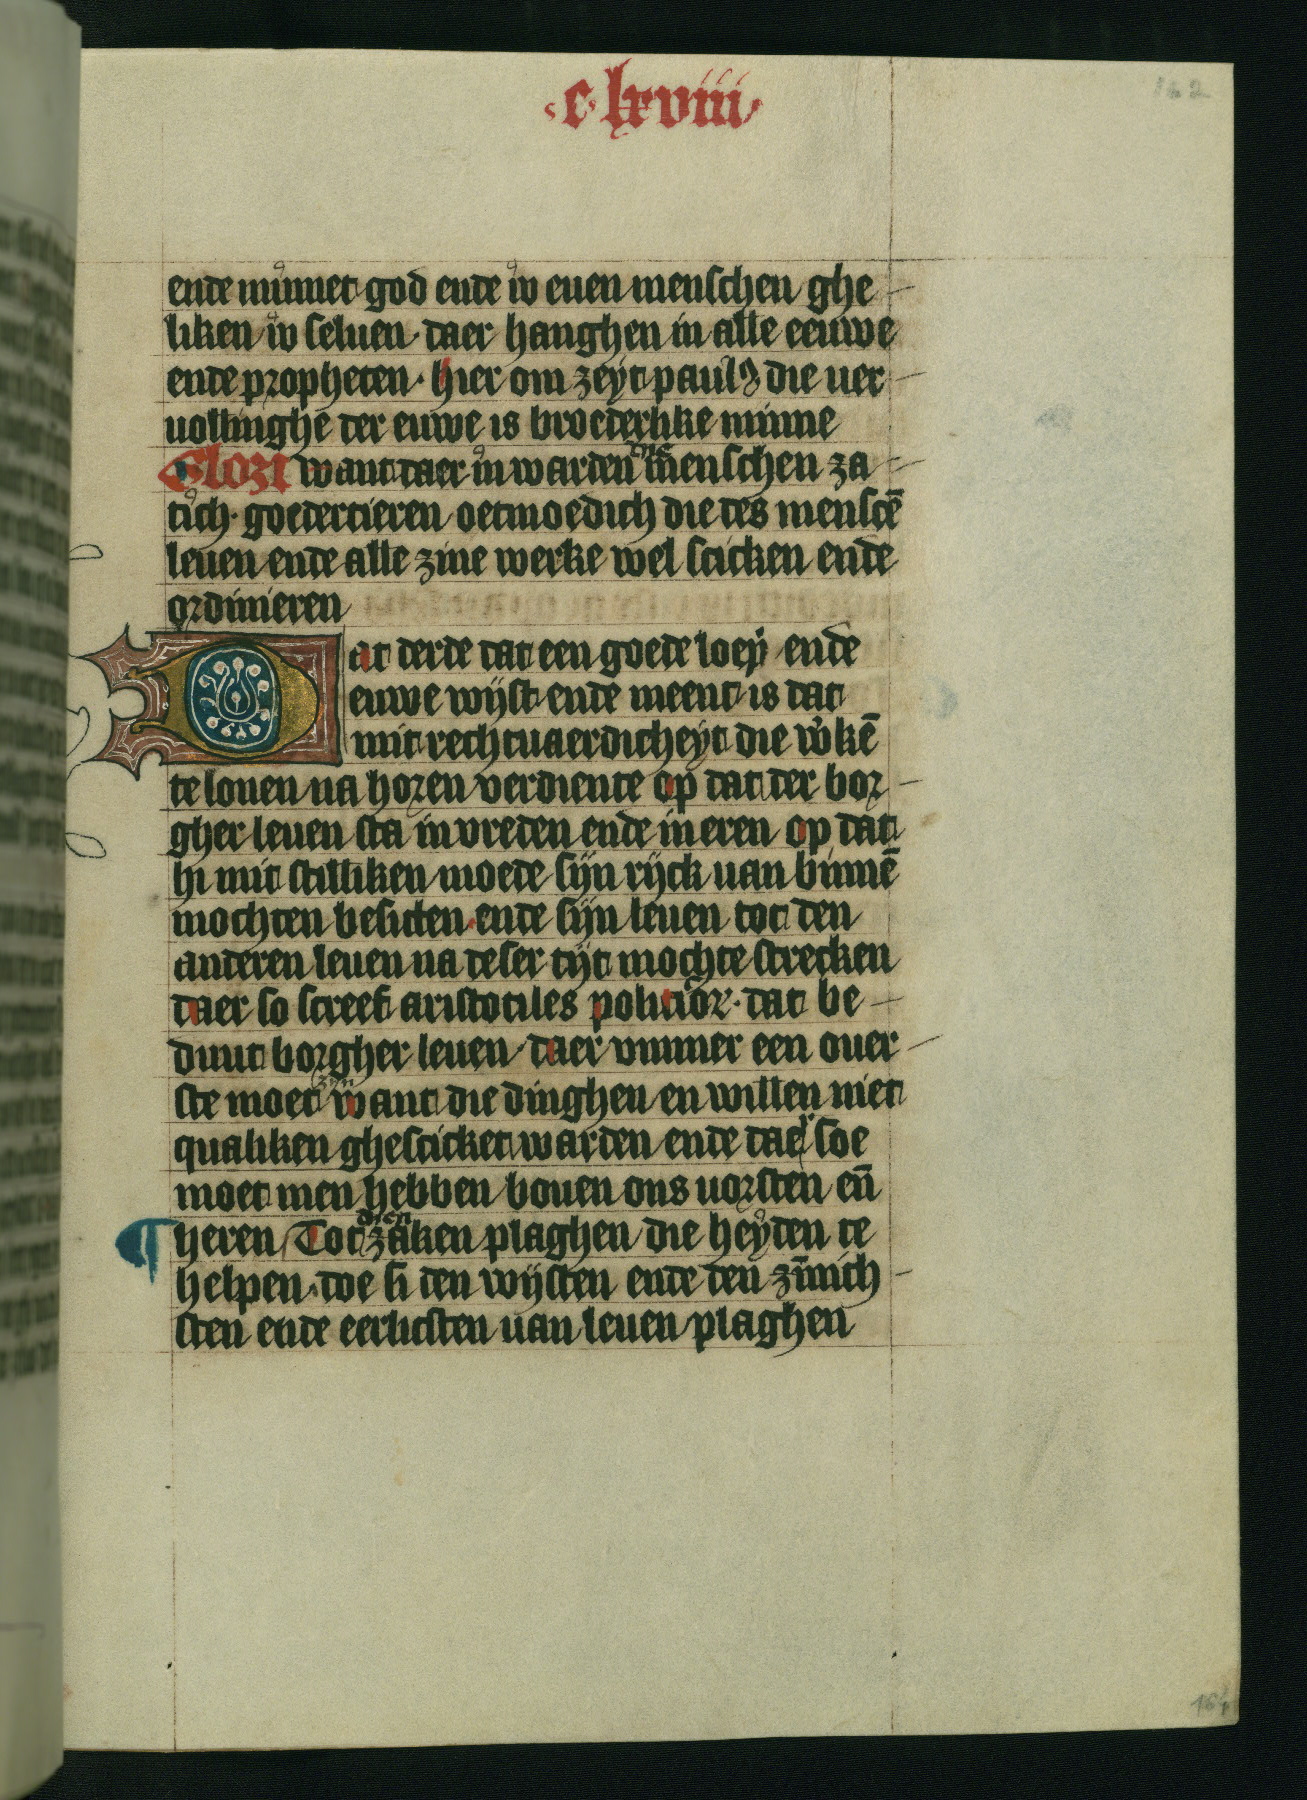 ·c·lxviii·
162
ende minnet god ende uͦw euen menschen ghe
liken uͦw seluen· daer hanghen in alle eeuwe
ende propheten· hier om zeyt paulꝰ die uer
uollinghe der euwe is broederlike minne
want daer in warden die menschen za
tich· goedertieren oetmoedich die des menscē
leuen ende alle zine werke wel sticken ende
ordinieren
Dat derde dat een goede loey ende
euwe wijst ende meent is dat
mit rechtuaerdicheyt die w̓kē
te louen na horen verdiente op dat der bor
gher leuen sta in vreden ende in eren op dat
hi mit stilliken moede sijn rijck uan binnē
mochten besitten· ende sijn leuen tot den
anderen leuen na deser tijt mochte strecken
daer so screef aristotiles politicor̄· dat be
duut borgher leuen· daer vmmer een ouer
ste moet zijn want die dinghen en willen niet
qualiken ghesticket warden ende daer soe
moet men hebben bouen ons uorsten en̄
heren Tot dien zaken plaghen die heyden te
helpen· doe si den wijsten ende den zīnich
sten ende eerlicsten uan leuen plaghen